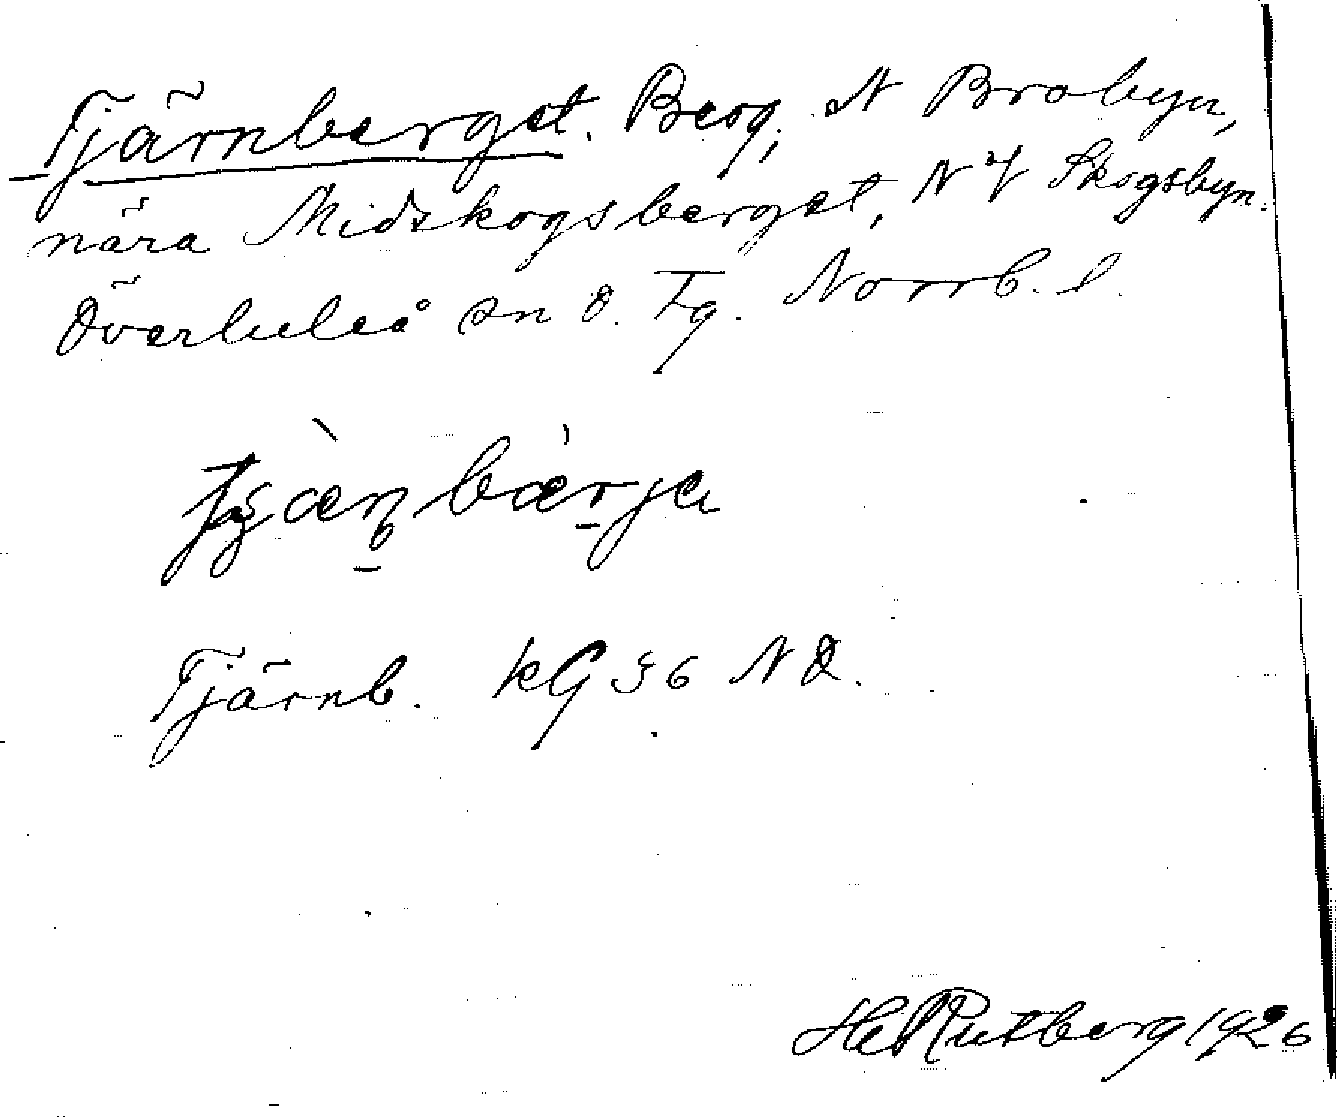 Tjärnberget. Berg, N Brobyn,
nära Midskogsberget, N if Skogsbyn.
Överluleå sn Ö. Tg. Norrb. l.
Tjärnb. KG 36 NO.
He Rutberg 1926